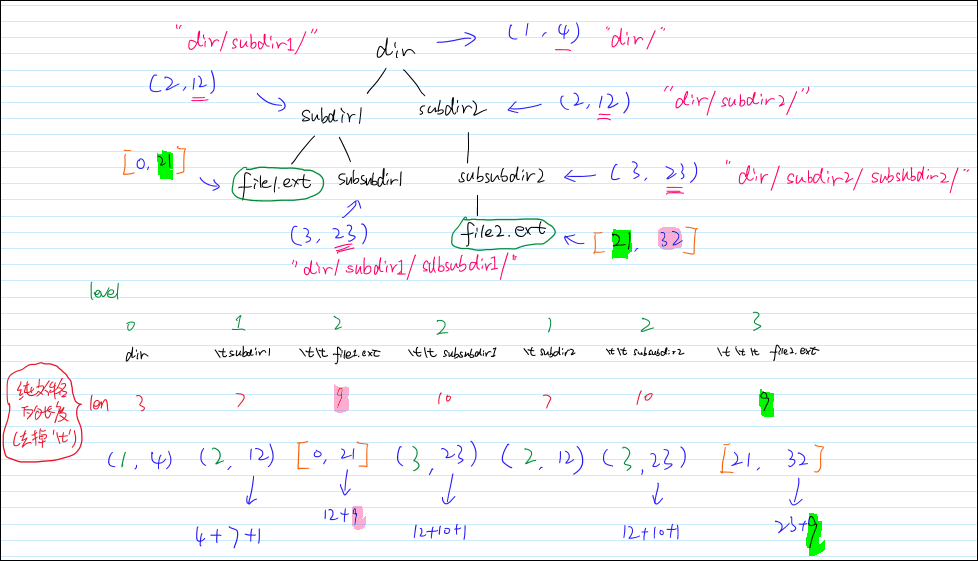 "dir/subdir1/"
dir
(1, 4) "dir/"
(2, 12)
subdir1
subdir2
(2, 12) "dir/subdir2/"
[0, 21]
file1.ext
subsubdir1
subsubdir2
(3, 23) "dir/subdir2/subsubdir2/"
(3, 23)
"dir/subdir1/subsubdir1/"
file2.ext
[21, 32]
level
0 1 2 2 1 2 3
dir \t subdir1 \t\t file1.ext \t\t subsubdir1 \t subdir2 \t\t subsubdir2 \t\t\t file2.ext
纯文件名
的长度
(去掉'\t')
len 3 7 9 10 7 10 9
(1, 4) (2, 12) [0, 21] (3, 23) (2, 12) (3, 23) [21, 32]
4+7+1 12+9 12+10+1 12+10+1 23+9